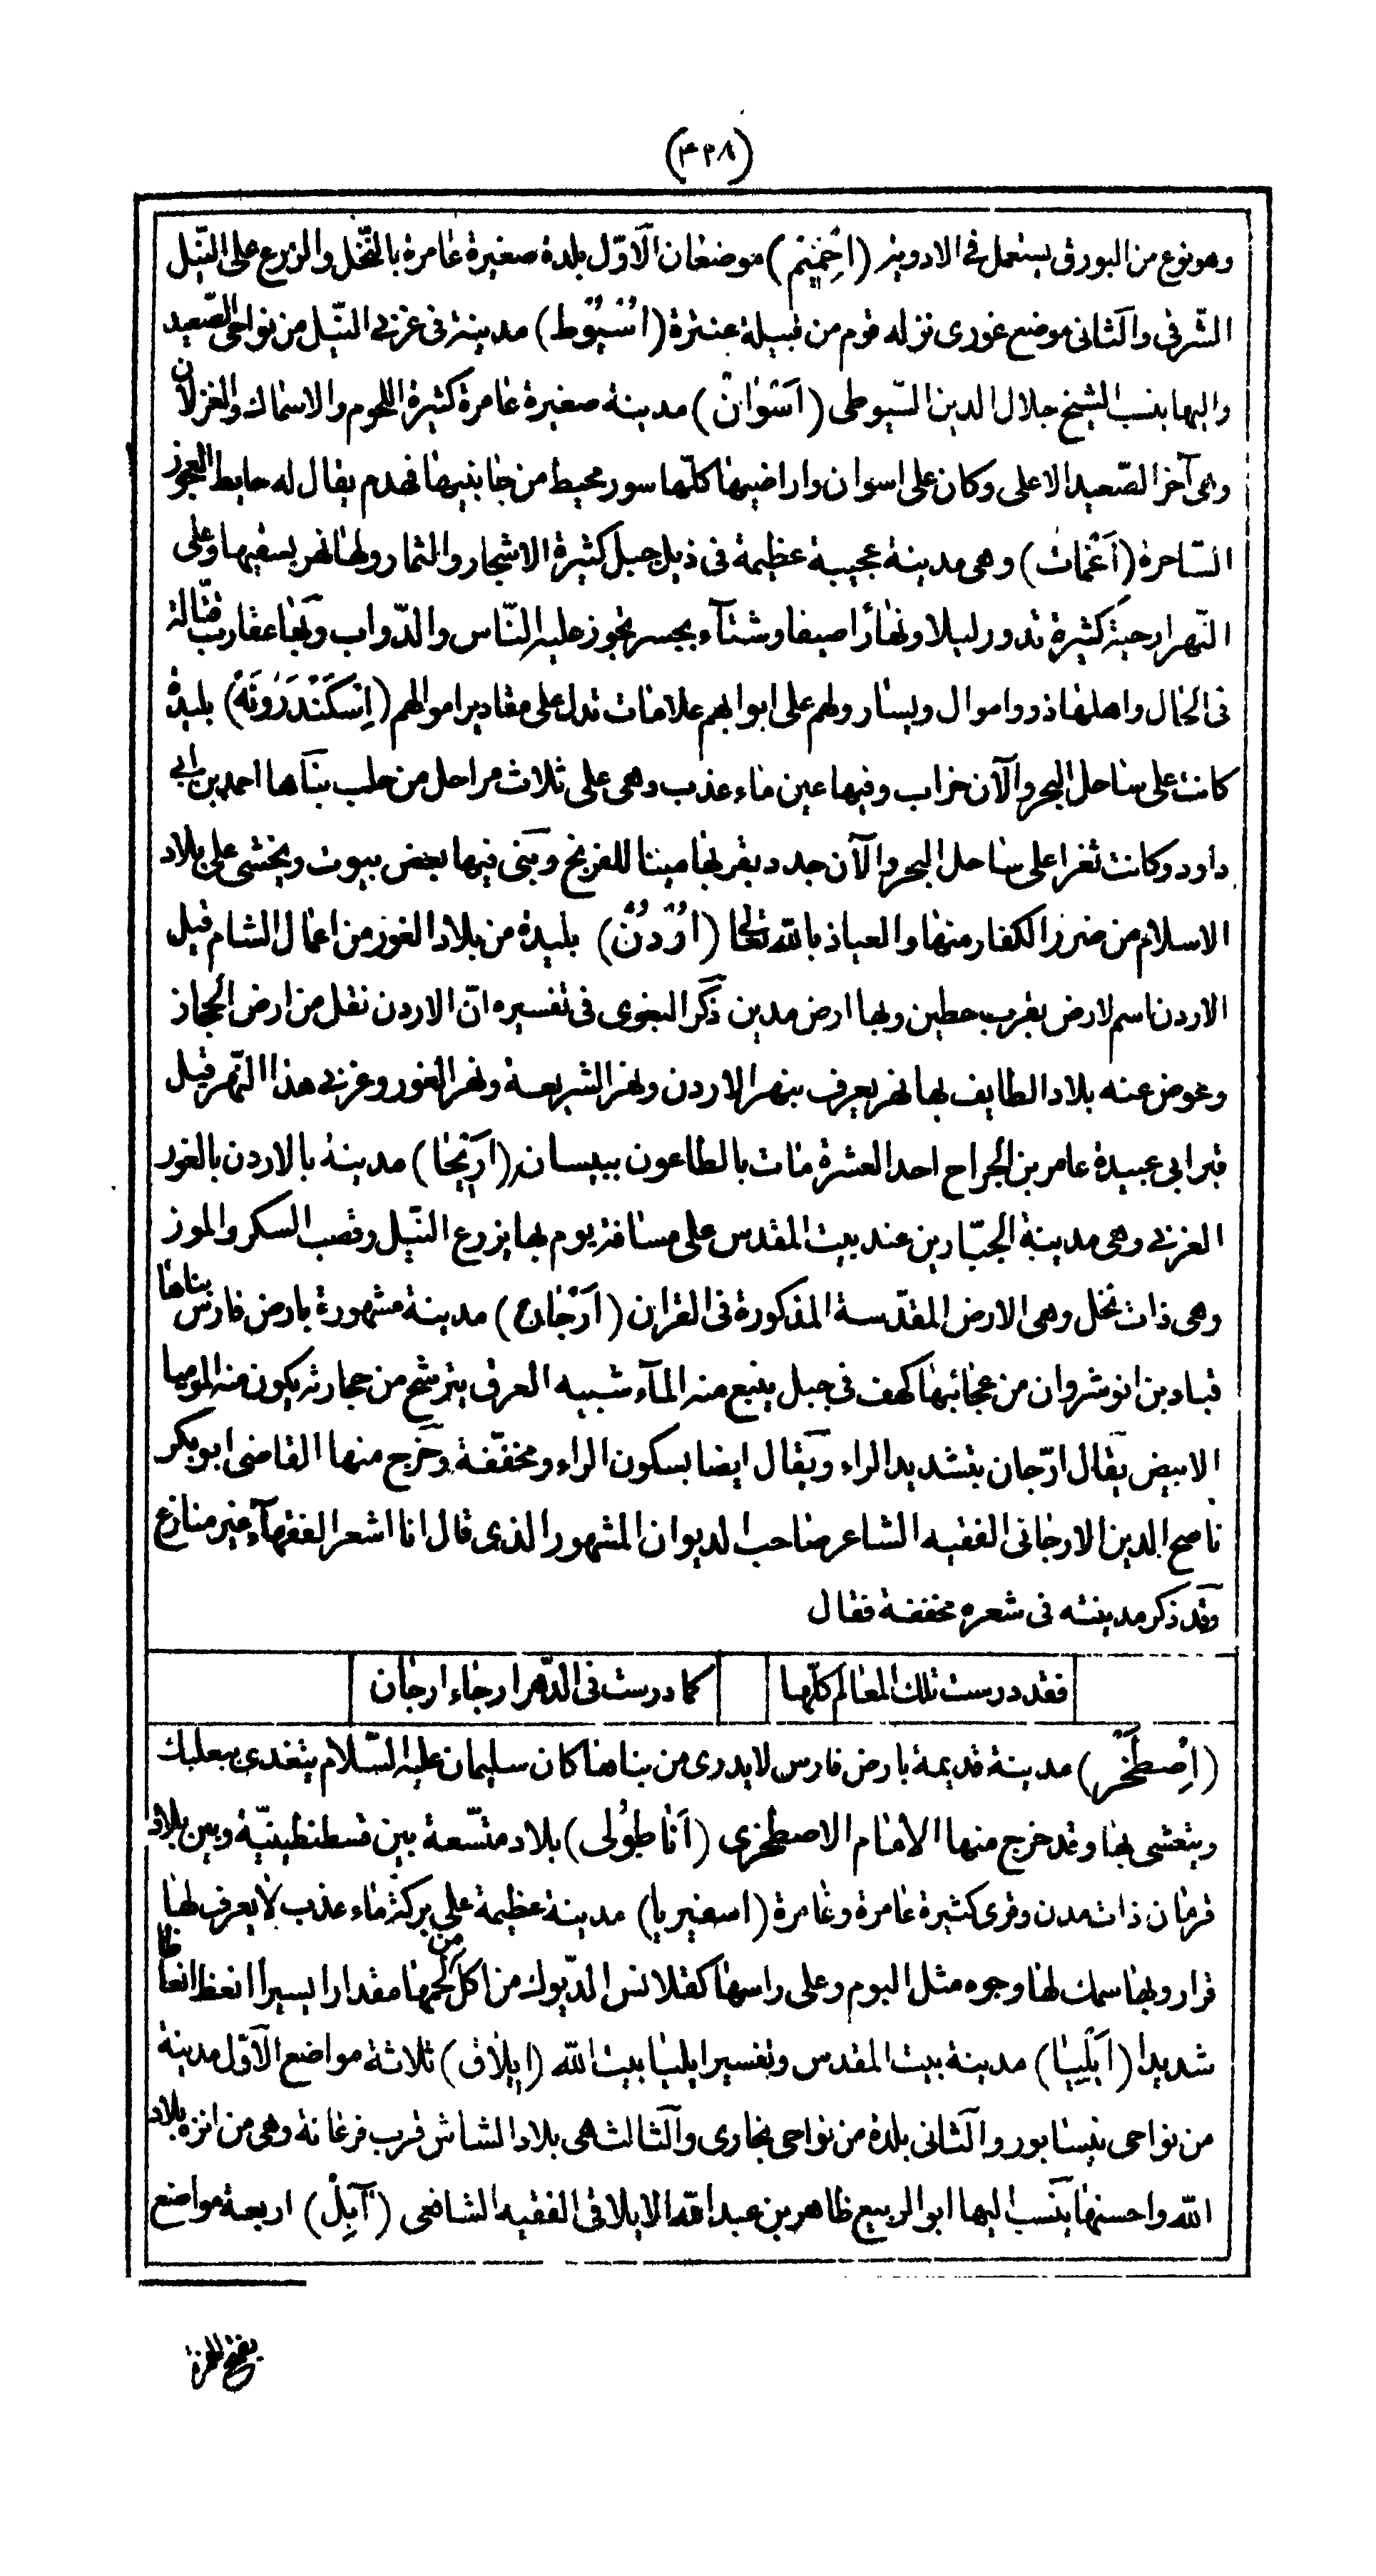 (٤٢٨)
وهو نوع من البورق يستعمل فى الادوية (اخميم) موضعان الاوّل بلدة صغيرة عامرة بالنّخل والزرع على النّيل
الشّرقى والثانى موضع غورى نزله قوم من قبيلة عنترة (اُسْيُوُط) مدينة فى غربى النّيل من نواحى الصّعيد
واليها ينسب الشيخ جلال الدين السّيوطى (اَسْوان) مدينة صغيرة عامرة كثيرة اللحوم والاسماك والغزلان
وهى آخر الصّعيد الاعلى وكان على اسوان واراضيها كلّها سور محيط من جانبيها فهدم يقال له حايط العجوز
السّاحرة (اَغْمات) وهى مدينة عجيبة عظيمة فى ذيل جبل كثيرة الاشجار والثمار ولها نهر يسقيها وعلى
النّهر ارحية كثيرة تدور ليلا ونهارًا صيفا وشتآء بجسر تجوز عليه النّاس والدّواب وبها عقارب قتّالة
فى الحال واهلها ذووا موال ويسار ولهم على ابوابهم علامات تدل على مقادير اموالهم (اِسْكَنْدَرُونَةُ) بليدة
كانت على ساحل البحر والآن خراب وفيها عين ماء عذب وهى على ثلاث مراحل من حلب بنآها احمد بن ابى
داود وكانت ثغرا على ساحل البحر والآن جدد بقربها مينا للفرنج وبنى فيها بعض بيوت ويخشى على بلاد
الاسلام من ضرر الكفار منها والعياذ بالله تعالى (اُرْدُنّ) بليدة من بلاد الغور من اعمال الشام قيل
الاردن اسم لارض بقرب حطين وبها ارض مدين ذكر البغوى فى تفسيره انّ الاردن نقل من ارض الحجاز
وعوض عنه بلاد الطايف بها نهر يعرف بنهر الاردن ونهر الشريعة ونهر الغور وغربى هذا النّهر قيل
قبر ابى عبيدة عامر بن الجراح احد العشرة مات بالطاعون ببيسان (اَرِيْحَا) مدينة بالاردن بالغور
الغربى وهى مدينة الجبّارين عند بيت المقدس على مسافة يوم بها يزرع النّيل وقصب السكر والموز
وهى ذات نخل وهى الارض المقدّسة المذكورة فى القران (اَرّجان) مدينة مشهورة بارض فارس بناها
قباد بن انوشروان من عجائبها كهف فى جبل ينبع منه المآء شبيه العرق يترشّح من حجارته يكون منه الموميا
الابيض يقال ارّجان بتشديد الراء ويقال ايضا بسكون الراء ومخفّفة وخرج منها القاضى ابو بكر
ناصح الدين الارجانى الفقيه الشاعر صاحب الديوان المشهور الذى قال انا اشعر الفقهآء غير منازع
وقد ذكر مدينته فى شعره مخففة فقال
فقد درست تلك المعالم كلّها كما درست فى الدّهر ارجاء ارجان
(اِصْطَخْر) مدينة قديمة بارض فارس لا يدرى من بناها كان سليمان عليه السّلام يتغدى ببعلبك
ويتعشى بها وقد خرج منها الامام الاصطخرى (اَناطُولى) بلاد متّسعة بين قسطنطينيّة وبين بلاد
قرمان ذات مدن وقرى كثيرة عامرة وغامرة (اسفيريا) مدينة عظيمة على بركة ماء عذب لا يعرف لها
قرار وبها سمك لها وجوه مثل البوم وعلى راسها كقلانس الدّيوك من اكل من لحمها مقدارا يسيرا انعظ انعاظا
شديدا (اَيْليَا) مدينة بيت المقدس وتفسير ايليا بيت الله (ايلاق) ثلاثة مواضع الاوّل مدينة
من نواحى نيسابور والثانى بلدة من نواحى بخارى والثالث هى بلاد الشاش قرب فرغانة وهى من انزه بلاد
الله واحسنها ينسب اليها ابو الربيع طاهر بن عبد الله الايلاقى الفقيه الشافعى (آبِلْ) اربعة مواضع
بفتح الهمزة